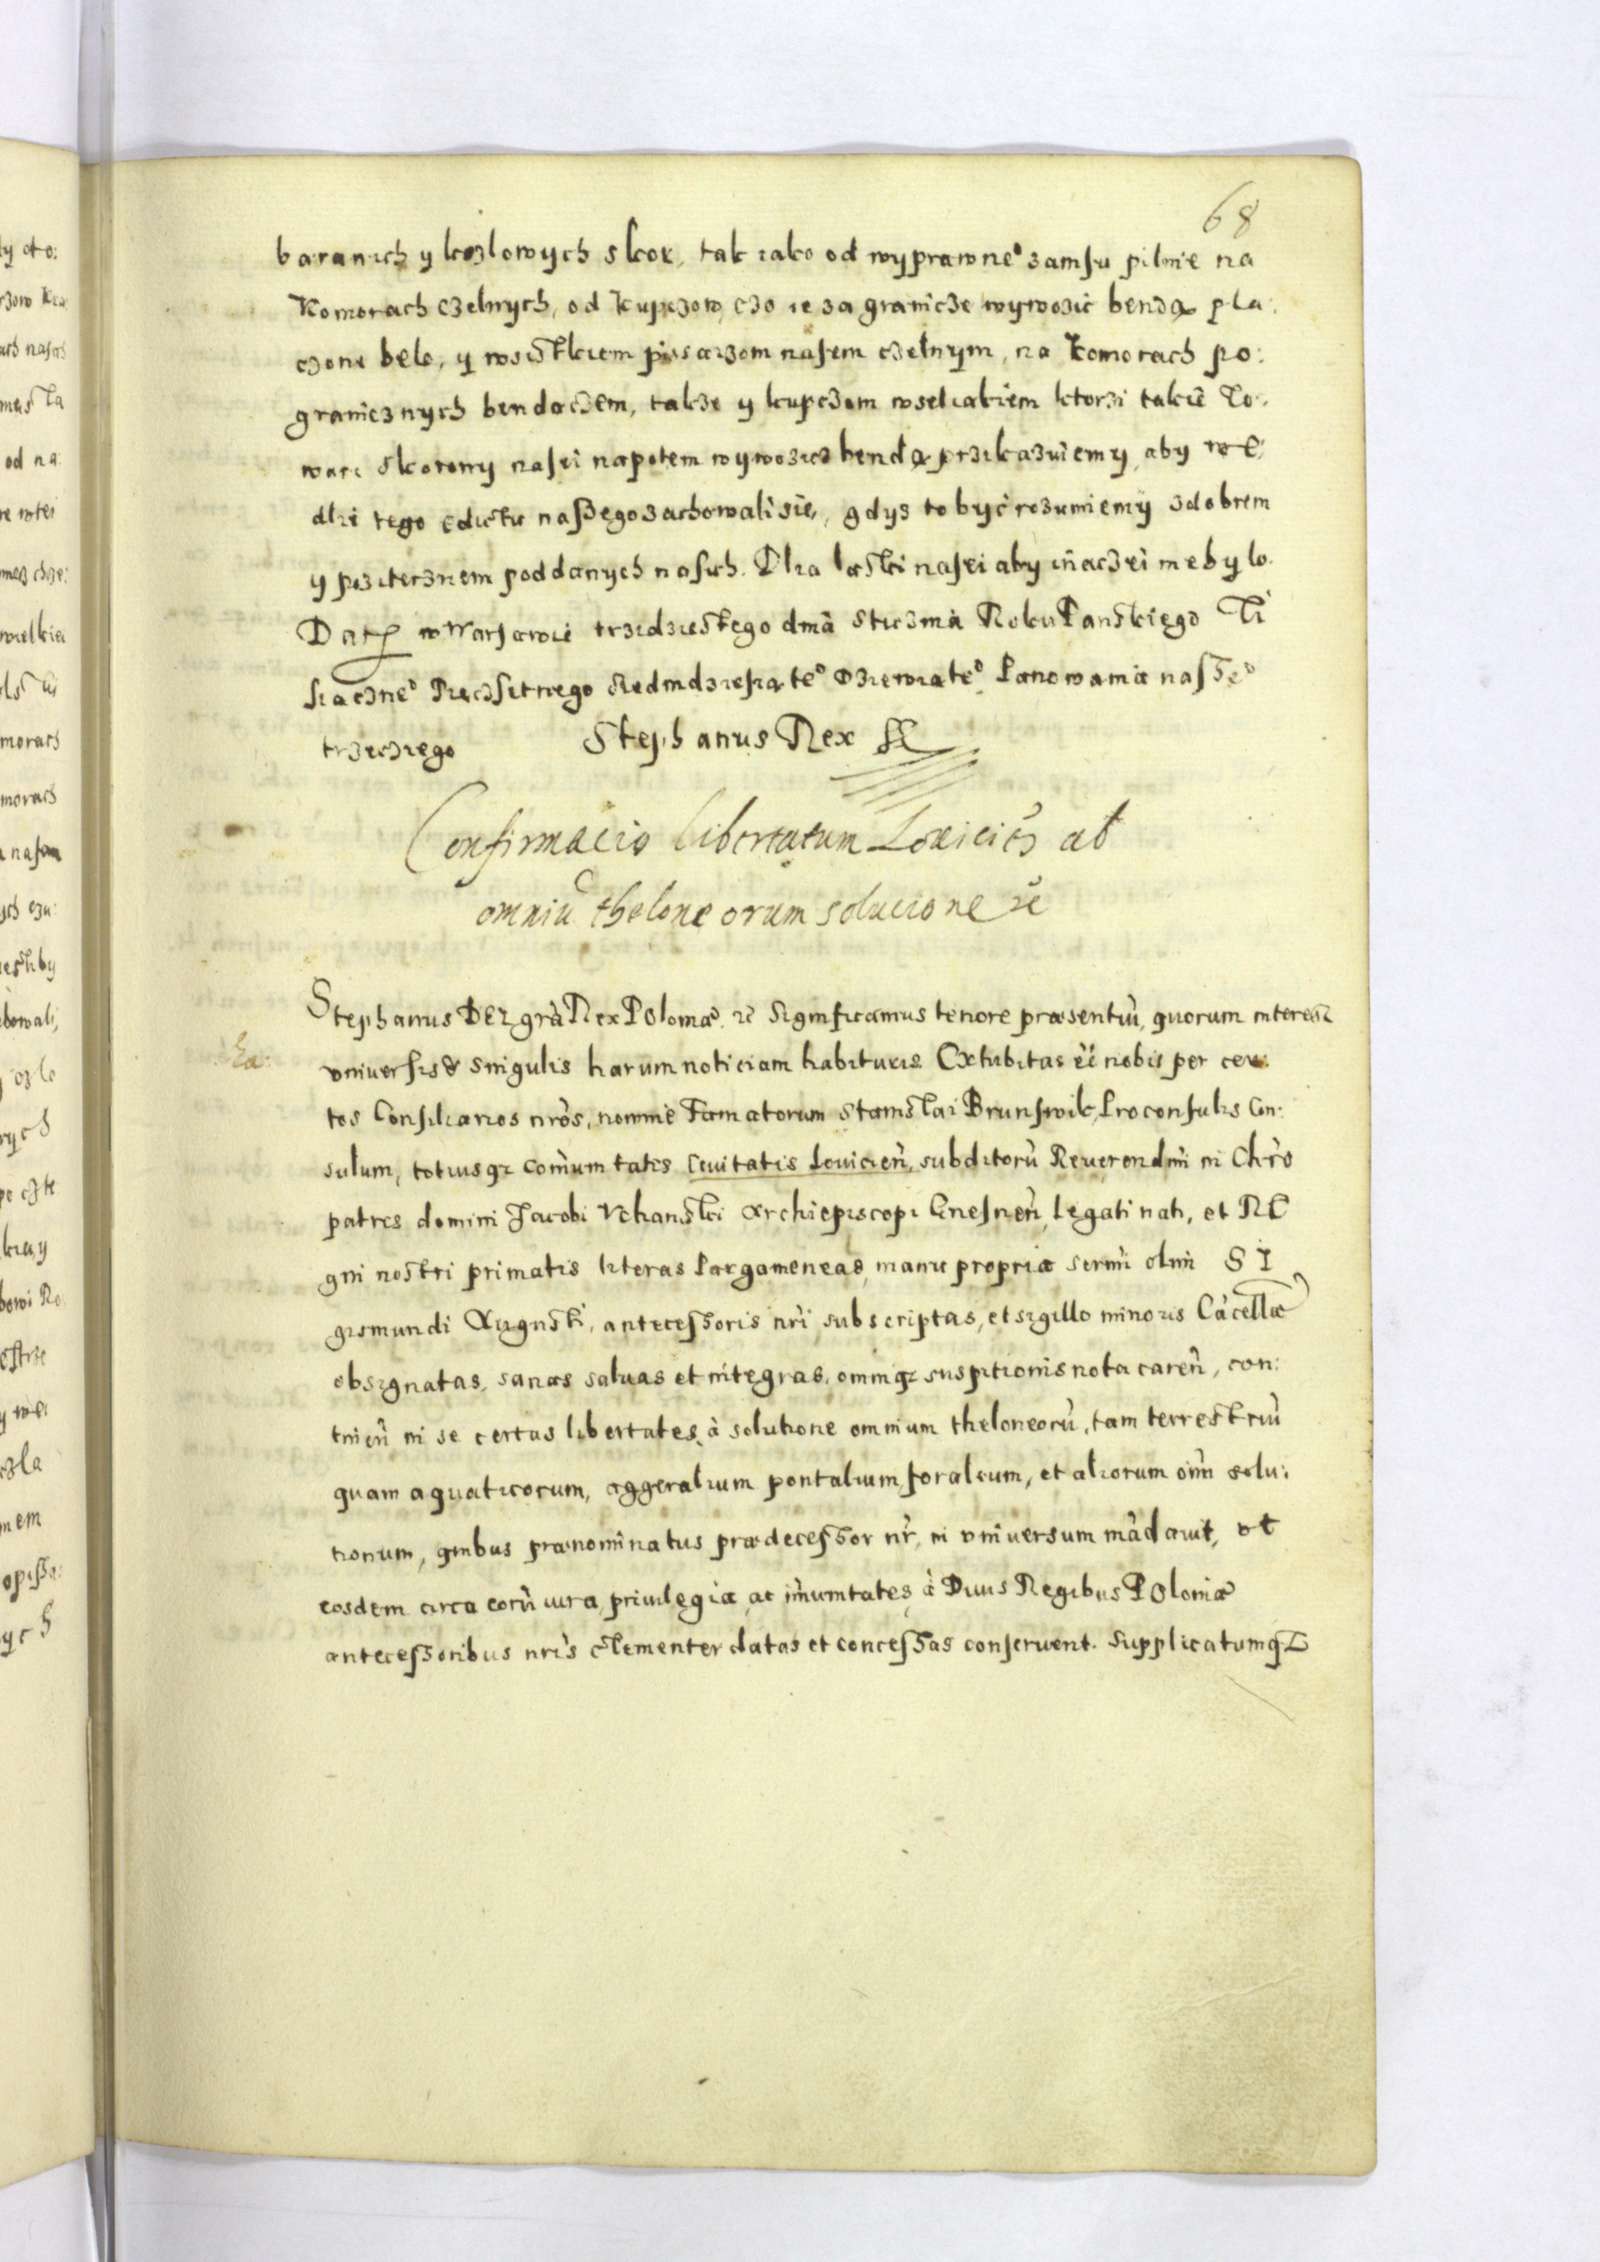 68
baranich y kozlowych skor, tak iako od wyprawne° zamsu pilnie na
Komorach czelnych, od kupczow, czo ie za granicze wywozić bendą pla:
czone belo, y wsistkiem pissarzom nasem czelnym, na komorach po:
granicznych bendączem, takze y kupczom wseliakiem ktorzi takie To:
wari skorony nasei napotem wywozicz bendą przikazuiemy, aby we:
dlii tego edictu naßego zachowali sie, gdys to być rozumiemy z dobrem
y pozitecznem poddanych nasich. Dlia laski nasei aby inaczei nie bylo.
Dat w Warsawie trzidziestego dnia Sticznia Roku Panskiego Ti
siaczne° Pieczsetnego siedmdziesiąte° dziewiąte° Panowania nasze°
trzeciego Stephanus Rex
Confirmacio libertatum Loviciēn ab
omniū theloneorum solucione rē
Stephanus DEI grà Rex Poloniæ rē Significamus tenore præsentiū, quorum interest
vniuersis & singulis harum noticiam habituris Exhibitas eē nobis per cer:
tos Consiliarios nrōs, nomine Famatorum Stanislai Brunswik, Proconsulis Con:
sulum, totiusqz comunitatis Ciuitatis Louicieñ, subditorū Reuerendmi in Chrō
patris domini Jacobi Vchanski Archiepiscopi Gnesneñ, Legati nati, et RE
gni nostri primatis literas Pargameneas, manu propria sermi olim SI
gismundi Augusti, antecessoris nri subscriptas, et sigillo minoris Cācellæ
obsignatas, sanas saluas et integras, omniqz suspitionis nota careñ, con:
tineñ in se certas libertates, à solutione omnium theloneorū, tam terrestriū
quam aquaticorum, aggeralium pontalium, foralium, et aliorum oīm solu:
tionum, quibus prænominatus prædecessor nr, in vniversum mādauit, vt
eosdem circa eorū iura, priuilegia, ac imunitates, à Diuis Regibus Poloniæ
antecessoribus nris clementer datas et concessas conseruent. Supplicatumqz